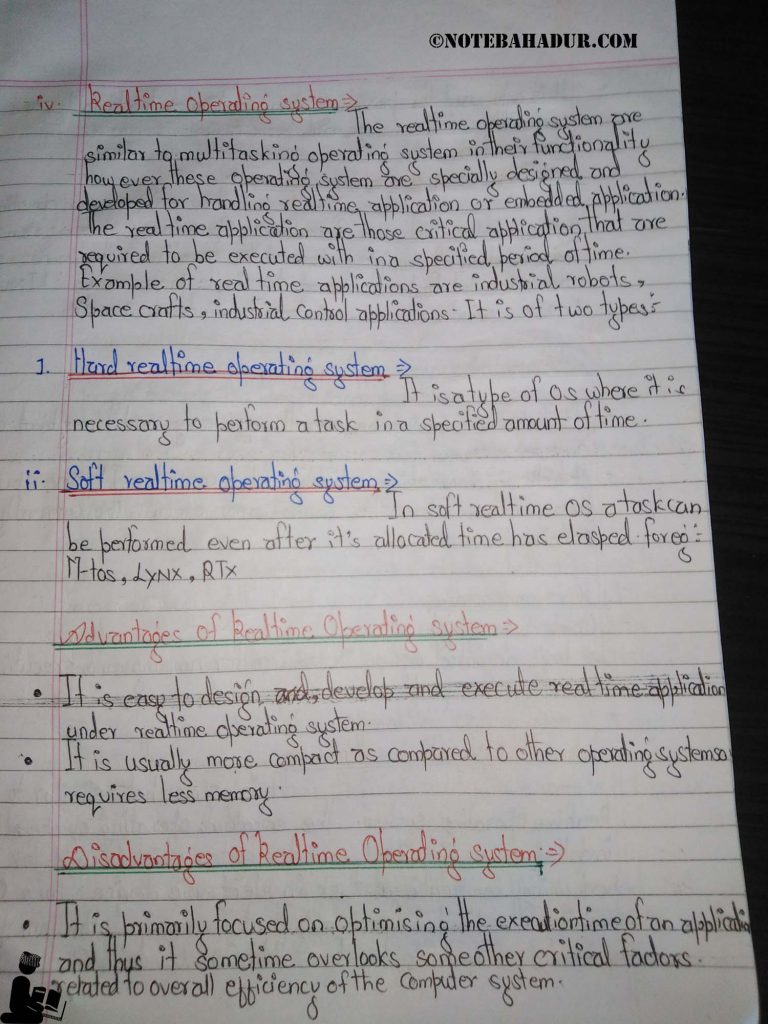 ©NOTEBAHADUR.COM
iv. Realtime Operating system ⇒
The realtime operating system are
similar to multitasking operating system in their functionality
however these operating system are specially designed and
developed for handling realtime application or embedded application.
The real time application are those critical application that are
required to be executed with in a specified period of time.
Example of real time applications are industrial robots,
Space crafts, industrial control applications. It is of two types:-
1. Hard realtime operating system ⇒
It is a type of OS where it is
necessary to perform a task in a specified amount of time.
ii. Soft realtime operating system ⇒
In soft realtime OS a task can
be performed even after it's allocated time has elasped. for eg:-
LYNX, RTX
Advantages of Realtime Operating system ⇒
• It is easy to design and, develop and execute real time application
under realtime operating system.
• It is usually more compact as compared to other operating system so
requires less memory.
Disadvantages of Realtime Operating system :⇒
• It is primarily focused on optimising the exeution time of an application
and thus it sometime overlooks some other critical factors.
related to overall efficiency of the computer system.